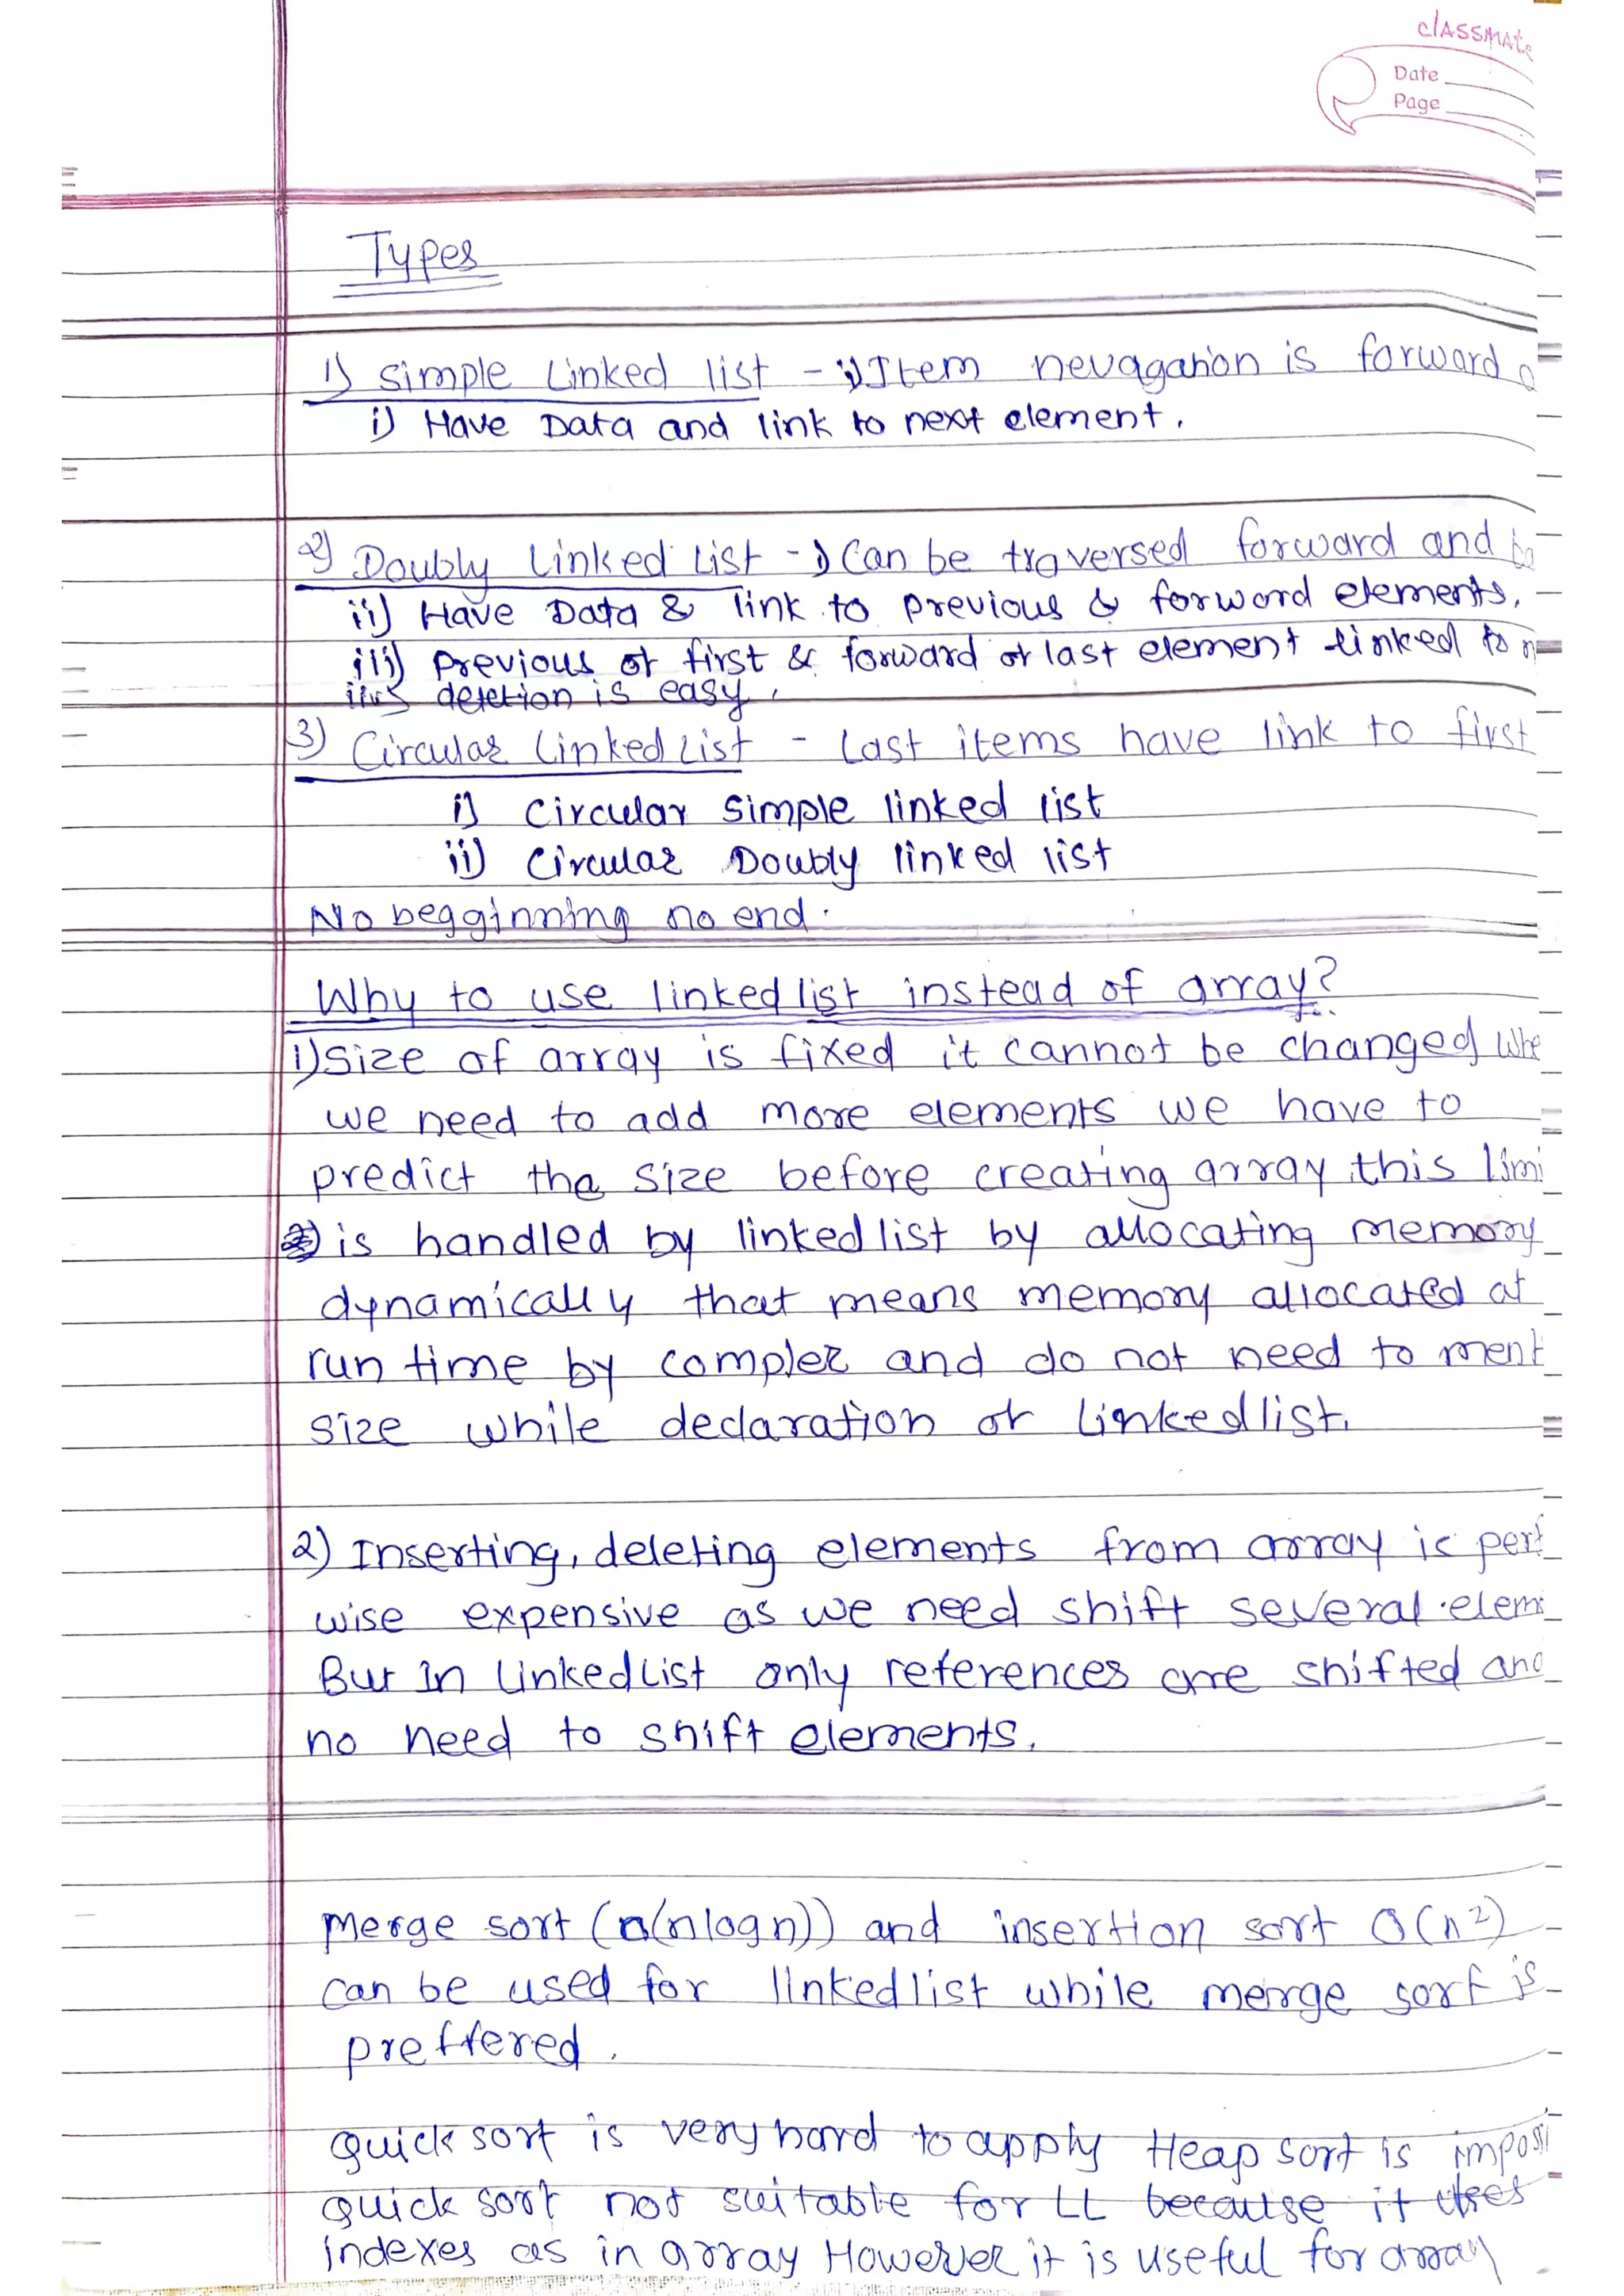 classmate
Date
Page
Types
1) Simple Linked list - i) Item nevagation is forward
i) Have Data and link to next element.
2) Doubly Linked List - i) Can be traversed forward and
ii) Have Data & link to previous & forword elements.
iii) previous of first & forward of last element linked to
deletion is easy.
3) Circular Linked List - Last items have link to first
i) Circular Simple linked list
ii) Circular Doubly linked list
No begginning no end.
Why to use linked list instead of array?
1) Size of array is fixed it cannot be changed
we need to add more elements we have to
predict the size before creating array this
is handled by linked list by allocating memory
dynamically that means memory allocated at
run time by compler and do not need to
size while declaration of Linked list.
2) Inserting, deleting elements from array is
wise expensive as we need shift several
But in Linked List only references are shifted
no need to shift elements.
Merge sort (O(nlogn)) and insertion sort O(n²)
can be used for linked list while merge sort is
preffered.
Quick sort is very hard to apply Heap sort is
Quick sort not suitable for LL because it uses
indexes as in array However it is useful for array